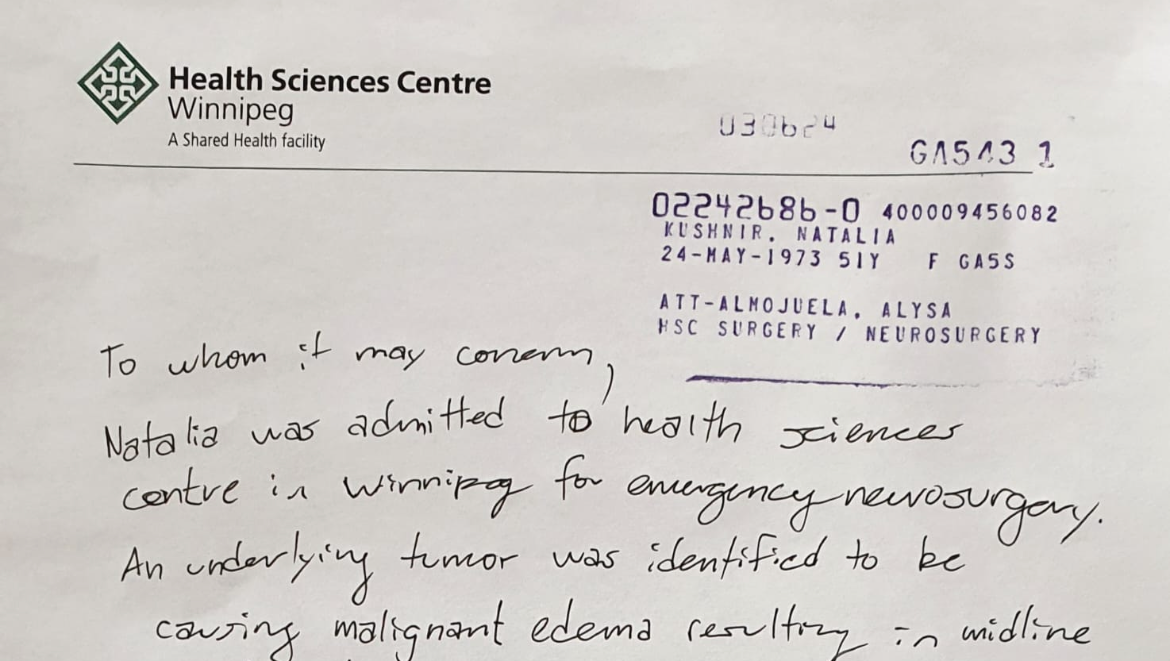 Health Sciences Centre
Winnipeg
A Shared Health facility
030624
GA5A3 1
02242686-0 400009456082
KUSHNIR, NATALIA
24-MAY-1973 51Y F GA5S
ATT-ALMOJUELA, ALYSA
HSC SURGERY / NEUROSURGERY
To whom it may concern,
Natalia was admitted to health sciences
centre in Winnipeg for emergency neurosurgery.
An underlying tumor was identified to be
causing malignant edema resulting in midline